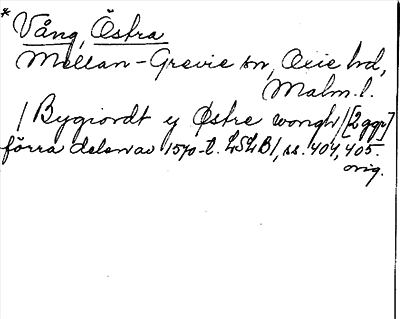 * Vång, Östra
Mellan-Grevie sn, Oxie hd,
Malm. l.
/ Bygiordt y Østre wongh / [2 ggr]
förra delen av 1570-t. LSLB 1, ss. 404, 405.
orig.